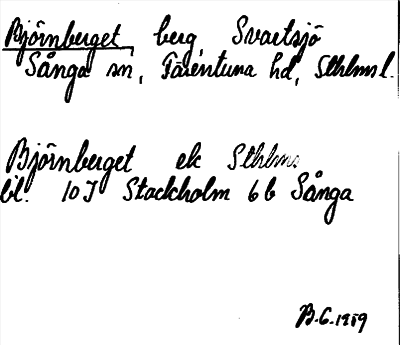 Björnberget, berg, Svartsjö
Sånga sn, Färentuna hd, Sthlms l.
Björnberget ek Sthlms
bl. 10 I Stockholm 6 b Sånga
B.G. 1989